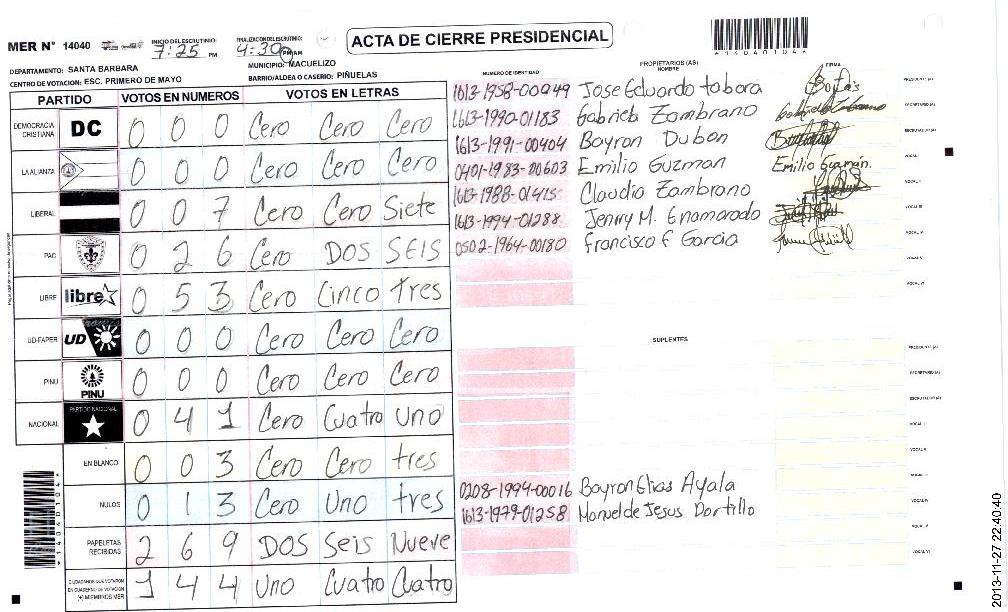 MER N° 14040
INICIO DEL ESCRUTINIO: 7:25 PM
FINALIZACION DEL ESCRUTINIO: 4:30 PM AM
ACTA DE CIERRE PRESIDENCIAL
*14040104*
DEPARTAMENTO: SANTA BARBARA
MUNICIPIO: MACUELIZO
CENTRO DE VOTACION: ESC. PRIMERO DE MAYO
BARRIO/ALDEA O CASERIO: PIÑUELAS
PARTIDO VOTOS EN NUMEROS VOTOS EN LETRAS
DEMOCRACIA CRISTIANA DC 0 0 0 Cero Cero Cero
LA ALIANZA 0 0 0 Cero Cero Cero
LIBERAL 0 0 7 Cero Cero Siete
PAC 0 2 6 Cero DOS SEIS
LIBRE libre 0 5 3 Cero Cinco tres
UD-FAPER UD 0 0 0 Cero Cero Cero
PINU PINU 0 0 0 Cero Cero Cero
NACIONAL PARTIDO NACIONAL 0 4 1 Cero Cuatro uno
EN BLANCO 0 0 3 Cero Cero tres
NULOS 0 1 3 Cero Uno tres
PAPELETAS RECIBIDAS 2 6 9 DOS Seis Nueve
CIUDADANOS QUE VOTARON EN CUADERNO DE VOTACION (+) MIEMBROS MER 1 4 4 Uno Cuatro Cuatro
NUMERO DE IDENTIDAD PROPIETARIOS (AS) NOMBRE FIRMA
1613-1958-00049 Jose Eduardo tabora PRESIDENTE (A)
1613-1990-01183 Gabriel Zambrano SECRETARIO (A)
1613-1991-00404 Boyron Dubon ESCRUTADOR (A)
0401-1983-00603 Emilio Guzman Emilio Guzmán. VOCAL I
1613-1988-01415 Claudio Zambrano VOCAL II
1613-1994-01288 Jenry M. Enamorado VOCAL III
0502-1964-00180 Francisco F Garcia VOCAL IV
VOCAL V
VOCAL VI
SUPLENTES
PRESIDENTE (A)
SECRETARIO (A)
ESCRUTADOR (A)
VOCAL I
VOCAL II
VOCAL III
0208-1994-00016 Boyron Elias Ayala VOCAL IV
1613-1979-01258 Manuel de Jesus Portillo
VOCAL V
VOCAL VI
2013-11-27 22:40:40